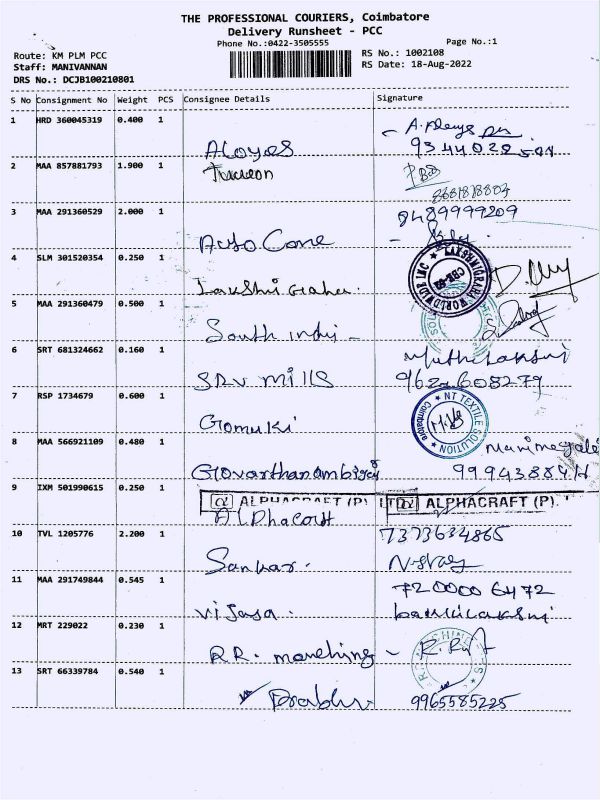 THE PROFESSIONAL COURIERS, Coimbatore
Delivery Runsheet - PCC
Phone No.:0422-3505555
Page No.:1
Route: KM PLM PCC
Staff: MANIVANNAN
DRS No.: DCJB100210801
RS No.: 1002108
RS Date: 18-Aug-2022
S No Consignment No Weight PCS Consignee Details Signature
1 HRD 360045319 0.400 1
Aloyes
2 MAA 857881793 1.900 1
3 MAA 291360529 2.000 1
9489999209
Auto Cone
4 SLM 301520354 0.250 1
LAKSHMIGRAHA WORLDWIDE INC
CBE-62
Lakshmi Graha
5 MAA 291360479 0.500 1
South Indi -
6 SRT 681324662 0.160 1
Muthulakshmi
SRV Mills
7 RSP 1734679 0.600 1
NT TEXTILE SOLUTION
Coimbatore
Gomuki
8 MAA 566921109 0.480 1
Manimegalai
Govarthanambigai
9 IXM 501990615 0.250 1
ALPHACRAFT (P) LTD
ALPHACRAFT (P).
Alphacraft
10 TVL 1205776 2.200 1
7373634865
Sankar.
11 MAA 291749844 0.545 1
720000 6472
Vijaya.
12 MRT 229022 0.230 1
R.R.
13 SRT 66339784 0.540 1
Prabhu.
9965585225